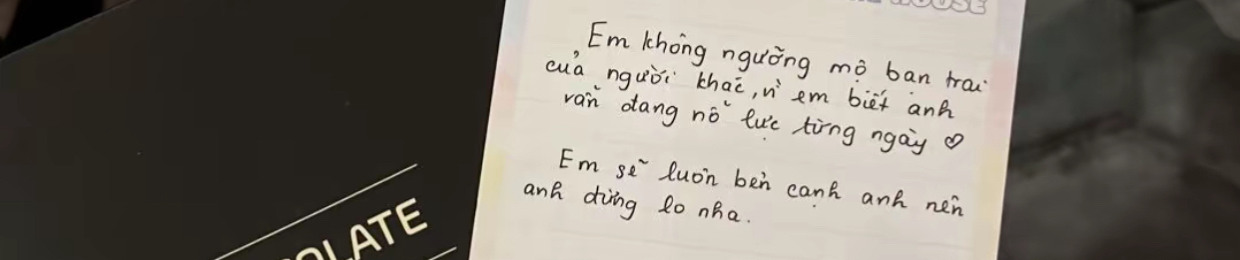 HOUSE
Em không ngưỡng mộ bạn trai
của người khác, vì em biết anh
vẫn đang nỗ lực từng ngày ♡
Em sẽ luôn bên cạnh anh nên
anh đừng lo nha.
OLATE